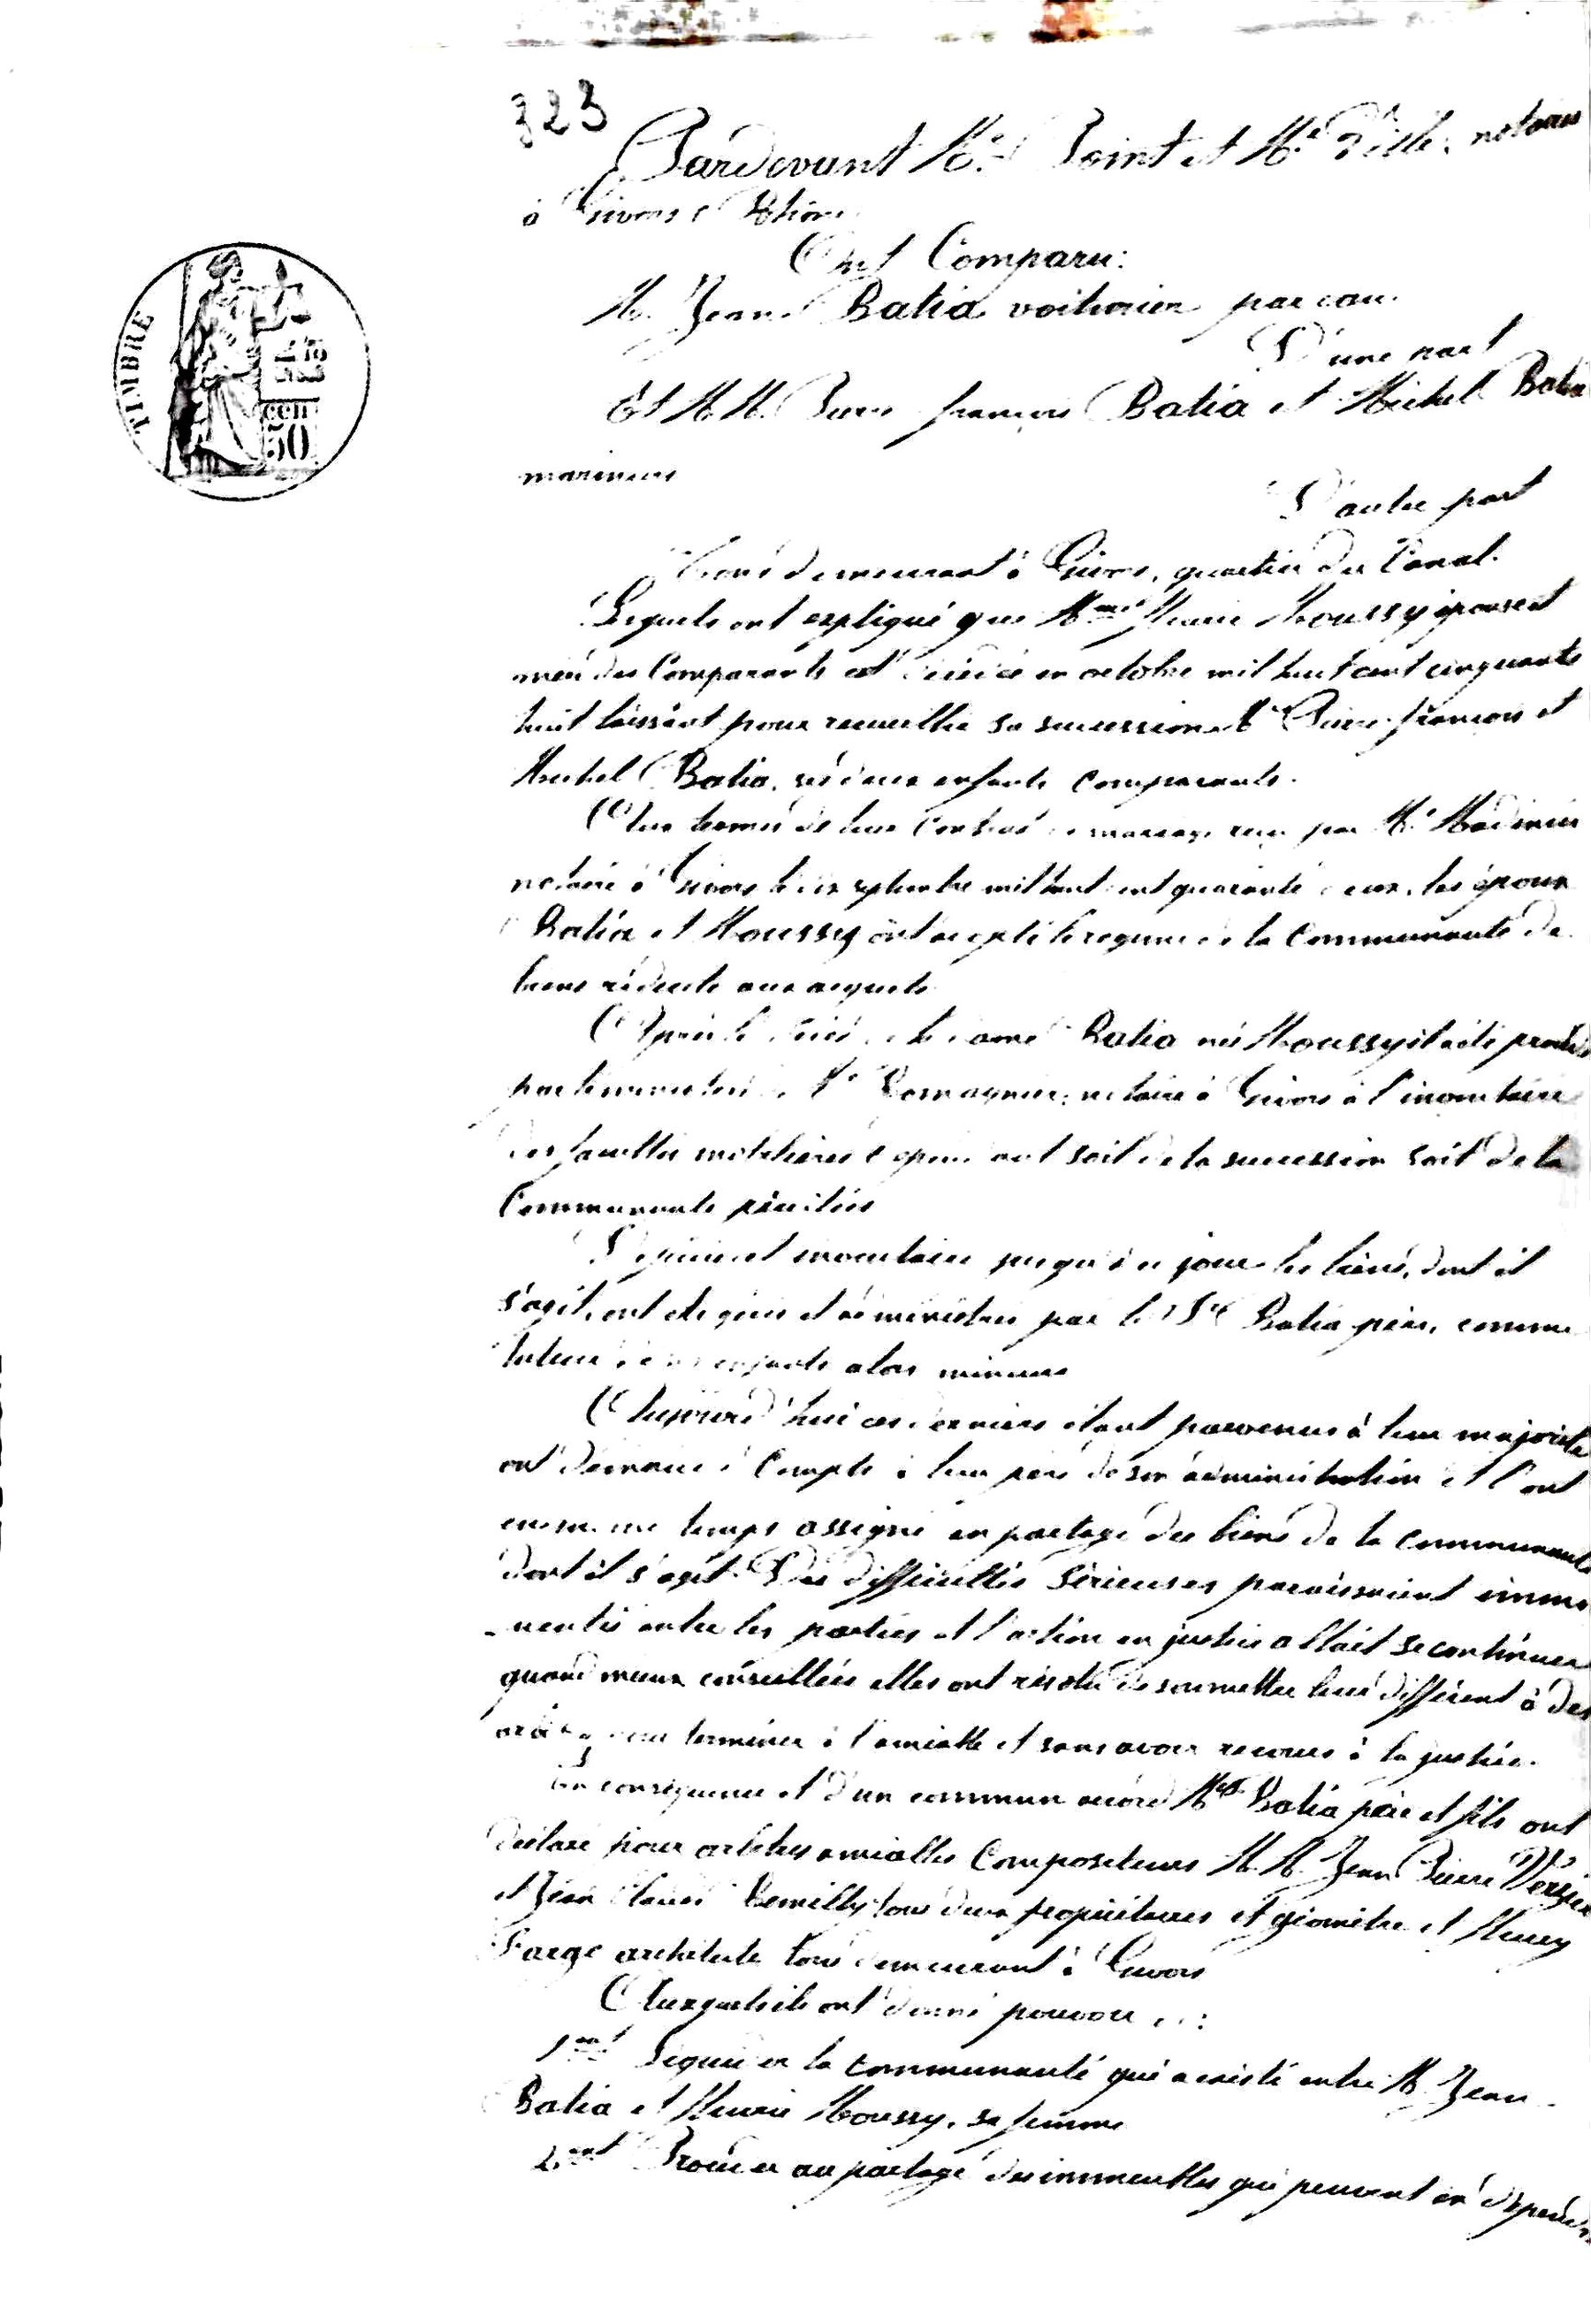 323
Pardevant Me Point et Me notaires
à Givors Rhône
Ont Comparu:
M. Jean Batia voiturier par eau.
D'une part
Et M M. Pierre françois Batia et Michel Batia
mariniers
D'autre part
Tous demeurant à Givors, quartier du Canal.
Lesquels ont expliqué que Mme Moussy épouse et
mère des Comparants est décédée en octobre mil huit cent cinquante
huit laissant pour recueillir sa succession Pierre françois et
Michel Batia, ses deux enfants comparants.
Aux termes de leur Contrat de mariage reçu par Me
notaire à Givors le dix septembre mil huit cent quarante deux, les époux
Batia et Moussy ont accepté le régime de la Communauté de
biens réduite aux acquets
Après le décès de la dame Batia née Moussy il a été procédé
par le ministère de Me notaire à Givors à l'inventaire
des facultés mobilières dépendant soit de la succession soit de la
Communauté précitées
Depuis cet inventaire jusqu'à ce jour les biens, dont il
s'agit, ont été gérés et administrés par le Sr Batia père, comme
tuteur de ses enfants alors mineurs
Aujourd'hui ces derniers étant parvenus à leur majorité
ont demandé Compte à leur père de son administration et l'ont
en même temps assigné en partage des biens de la communauté
dont il s'agit. Des difficultés sérieuses paraissaient immi
-nentes entre les parties et l'action en justice allait se continuer
quand mieux conseillées elles ont résolu de soumettre leur différent à des
pour terminer à l'amiable et sans avoir recours à la justice.
En conséquence et d'un commun accord Mrs Batia père et fils ont
déclaré pour arbitres amiables Compositeurs M. M. Jean Pierre
et Jean Claude Remilly tous deux propriétaires et géomètre et
Farge architecte tous demeurant à Givors
Auxquels ils ont donné pouvoir de:
1ent Liquider la communauté qui a existé entre M. Jean
Batia et Moussy, sa femme
2ent Procéder au partage des immeubles qui peuvent en dépendre
TIMBRE
50